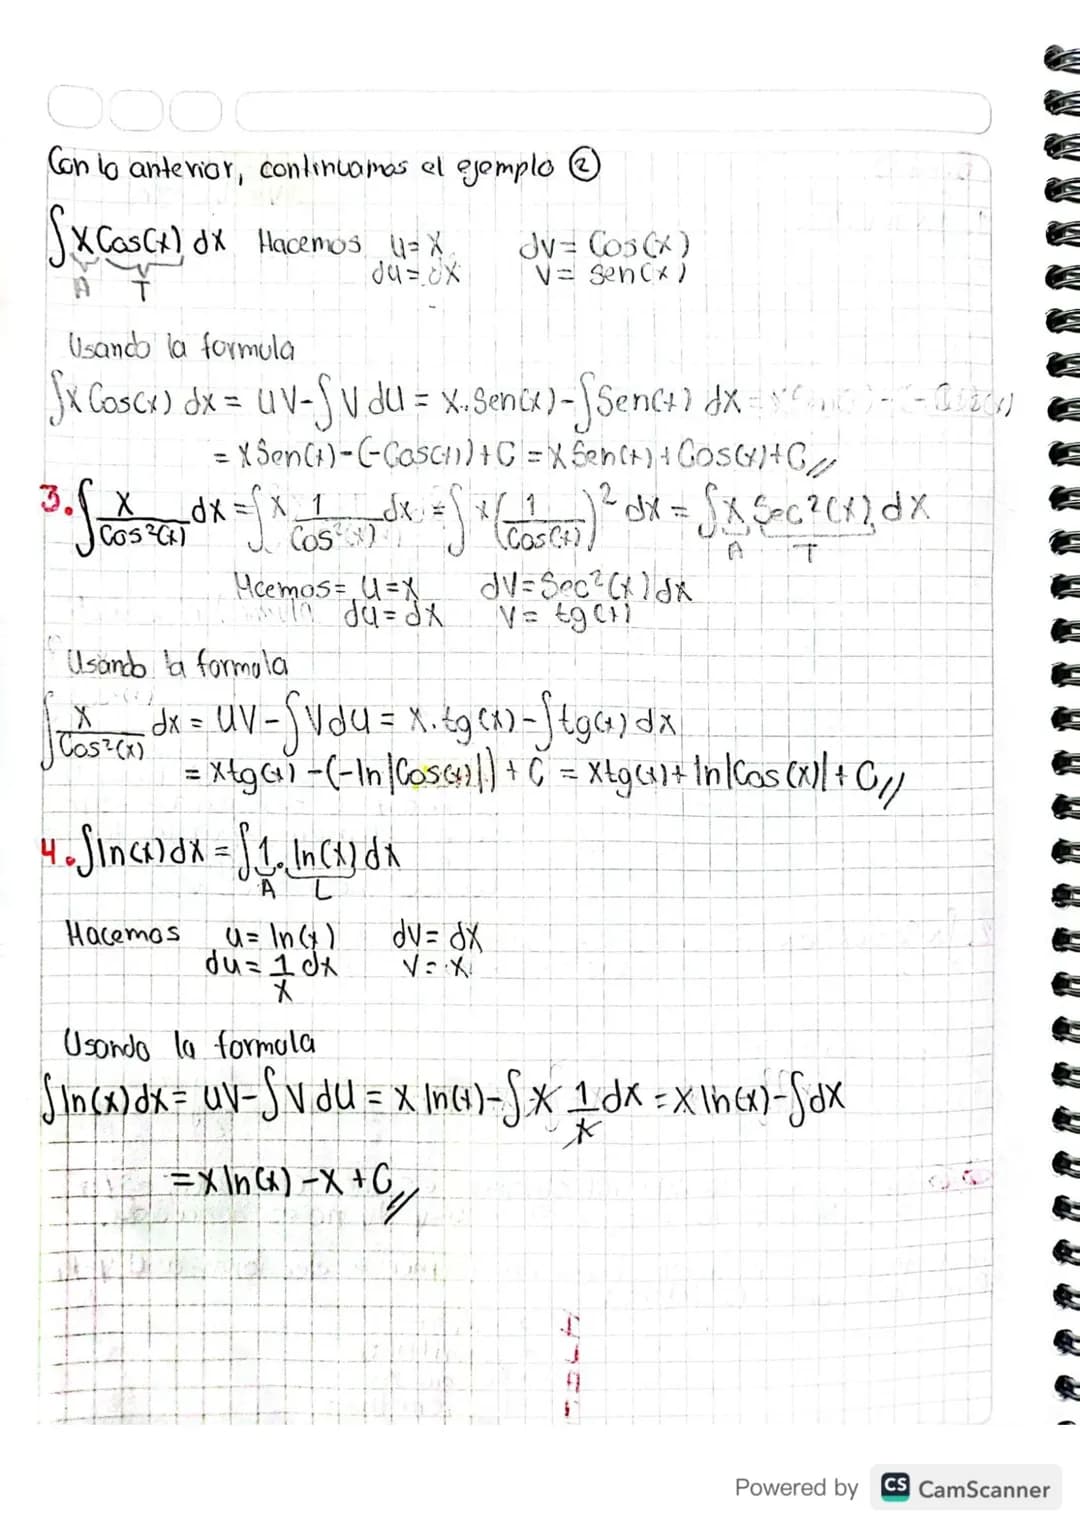 Con lo anterior, continuamos el ejemplo ②
∫x Cos(x) dx Hacemos u=x dv= Cos(x)
A T du=dx v= sen(x)
Usando la formula
∫x Cos(x) dx = uv-∫v du = x. Sen(x)-∫Sen(x) dx
= x Sen(x)-(-Cos(x))+C = x Sen(x)+Cos(x)+C//
3. ∫ x/Cos²(x) dx = ∫ x 1/Cos²(x) dx = ∫ x (1/Cos(x))² dx = ∫x Sec²(x) dx
A T
Hcemos= u=x dv=Sec²(x)dx
du=dx v= tg(x)
Usando la formula
∫ x/Cos²(x) dx = uv-∫vdu = x.tg(x)-∫tg(x)dx
= xtg(x) -(-ln|Cos(x)|) + C = xtg(x)+ln|Cos(x)|+C//
4. ∫ln(x)dx = ∫1. ln(x)dx
A L
Hacemos u= ln(x) dv= dx
du= 1/x dx v= x
Usando la formula
∫ln(x)dx= uv-∫v du = x ln(x)-∫x 1/x dx = x ln(x)-∫dx
=x ln(x) -x +C//
Powered by CS CamScanner